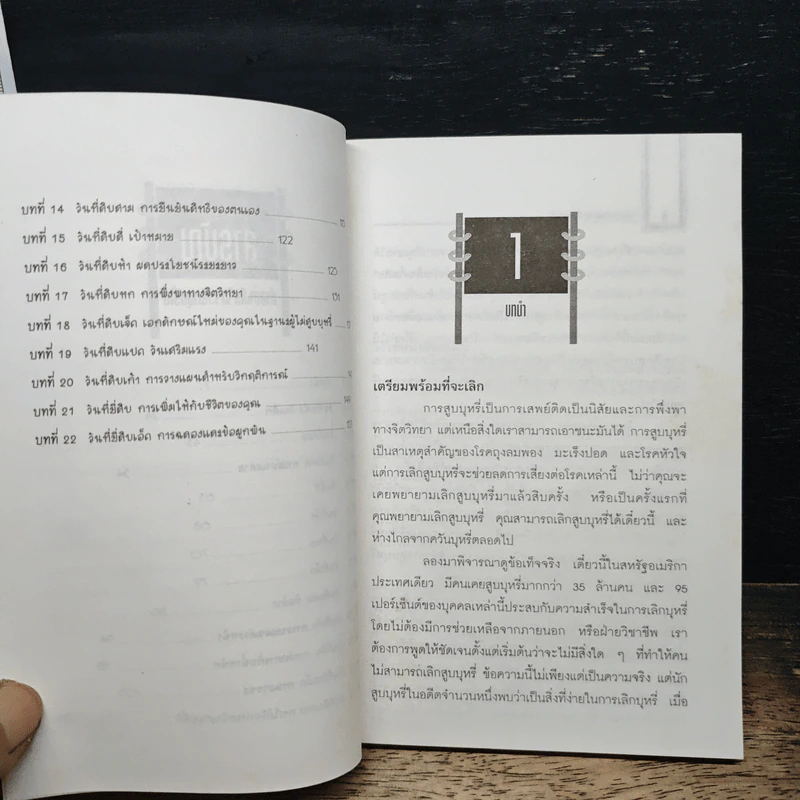 บทที่ 14 วันที่สิบสาม การยืนยันสิทธิของตนเอง
บทที่ 15 วันที่สิบสี่ เป้าหมาย 122
บทที่ 16 วันที่สิบห้า ผลประโยชน์ระยะยาว 125
บทที่ 17 วันที่สิบหก การพึ่งพาทางจิตวิทยา 131
บทที่ 18 วันที่สิบเจ็ด เอกลักษณ์ใหม่ของคุณในฐานะผู้ไม่สูบบุหรี่
บทที่ 19 วันที่สิบแปด วันเสริมแรง 141
บทที่ 20 วันที่สิบเก้า การวางแผนสำหรับวิกฤติการณ์
บทที่ 21 วันที่ยี่สิบ การเพิ่มให้กับชีวิตของคุณ 149
บทที่ 22 วันที่ยี่สิบเอ็ด การฉลองและข้อผูกพัน
1
บทนำ
เตรียมพร้อมที่จะเลิก
การสูบบุหรี่เป็นการเสพย์ติดเป็นนิสัยและการพึ่งพา
ทางจิตวิทยา แต่เหนือสิ่งใดเราสามารถเอาชนะมันได้ การสูบบุหรี่
เป็นสาเหตุสำคัญของโรคถุงลมพอง มะเร็งปอด และโรคหัวใจ
แต่การเลิกสูบบุหรี่จะช่วยลดการเสี่ยงต่อโรคเหล่านี้ ไม่ว่าคุณจะ
เคยพยายามเลิกสูบบุหรี่มาแล้วสิบครั้ง หรือเป็นครั้งแรกที่
คุณพยายามเลิกสูบบุหรี่ คุณสามารถเลิกสูบบุหรี่ได้เดี๋ยวนี้ และ
ห่างไกลจากควันบุหรี่ตลอดไป
ลองมาพิจารณาดูข้อเท็จจริง เดี๋ยวนี้ในสหรัฐอเมริกา
ประเทศเดียว มีคนเคยสูบบุหรี่มากกว่า 35 ล้านคน และ 95
เปอร์เซ็นต์ของบุคคลเหล่านี้ประสบกับความสำเร็จในการเลิกบุหรี่
โดยไม่ต้องมีการช่วยเหลือจากภายนอก หรือฝ่ายวิชาชีพ เรา
ต้องการพูดให้ชัดเจนตั้งแต่เริ่มต้นว่าจะไม่มีสิ่งใด ๆ ที่ทำให้คน
ไม่สามารถเลิกสูบบุหรี่ ข้อความนี้ไม่เพียงแต่เป็นความจริง แต่นัก
สูบบุหรี่ในอดีตจำนวนหนึ่งพบว่าเป็นสิ่งที่ง่ายในการเลิกบุหรี่ เมื่อ